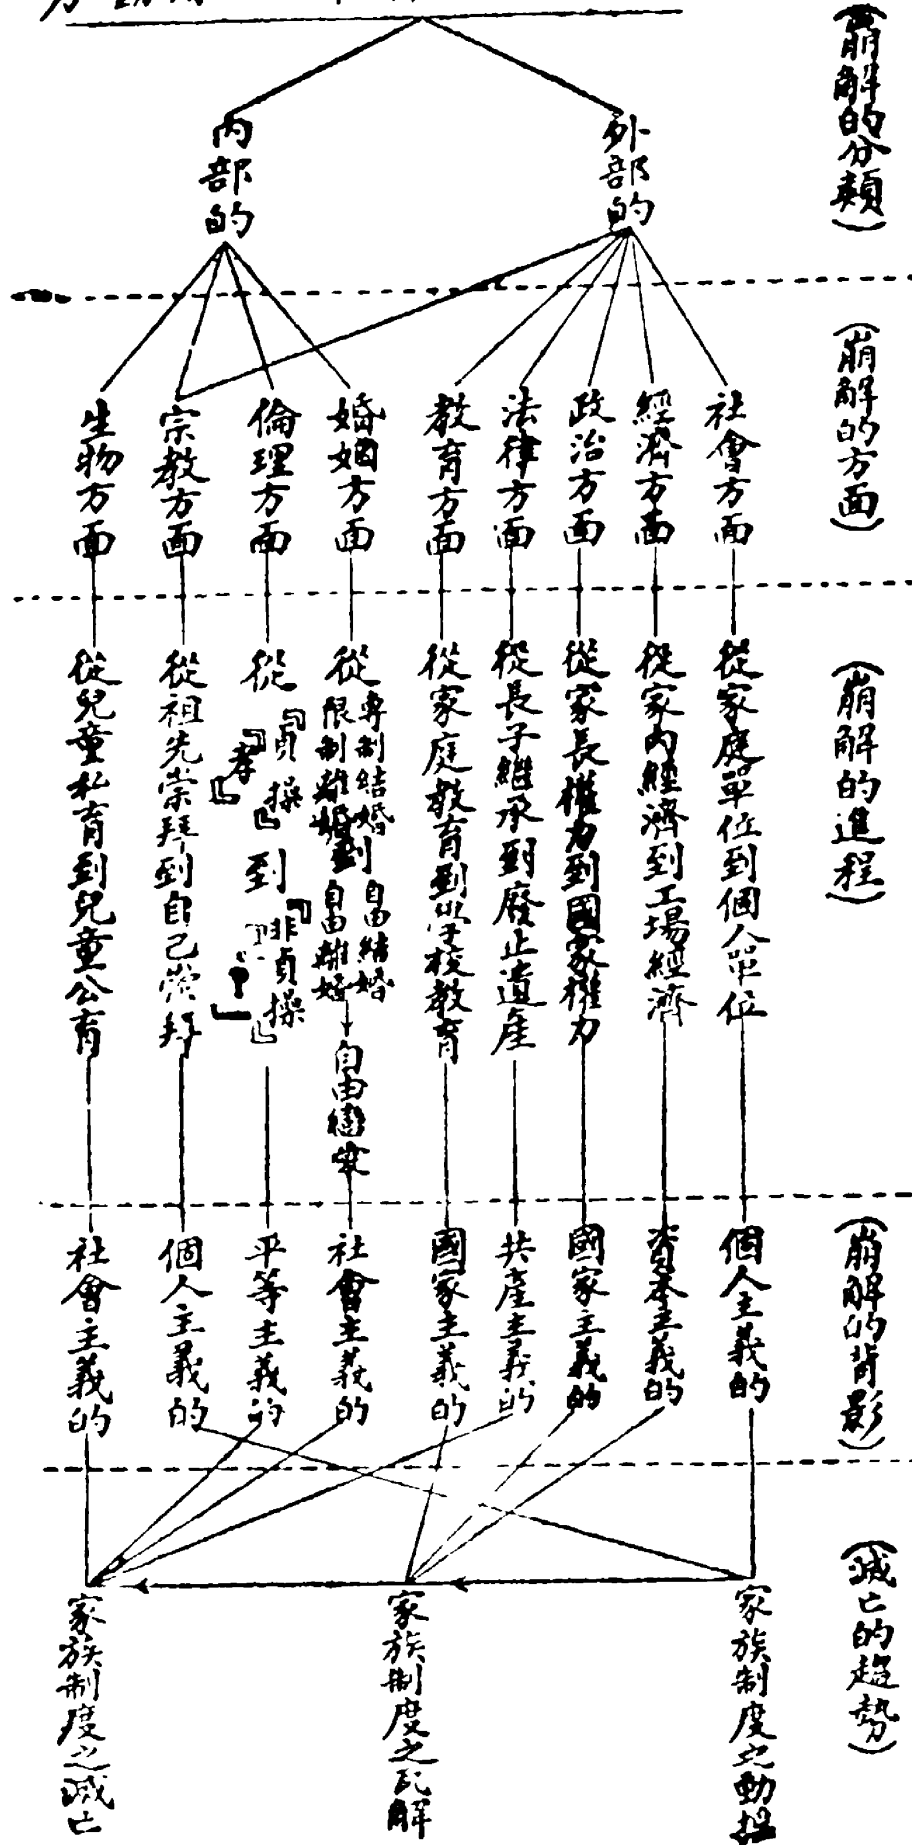 (崩解的分類)
外部的
內部的
(崩解的方面)
社會方面
經濟方面
政治方面
法律方面
教育方面
婚姻方面
倫理方面
宗教方面
生物方面
(崩解的進程)
從家庭單位到個人單位
從家內經濟到工場經濟
從家長權力到國家權力
從長子繼承到廢止遺產
從家庭教育到學校教育
從
專制結婚
限制離婚
到
自由結婚
自由離婚
自由
從
『貞操』
『孝』
到
『非貞操』
從祖先崇拜到自己崇拜
從兒童私育到兒童公育
(崩解的背影)
個人主義的
資本主義的
國家主義的
共產主義的
國家主義的
社會主義的
平等主義的
個人主義的
社會主義的
(滅亡的趨勢)
家族制度之動搖
家族制度之瓦解
家族制度之滅亡